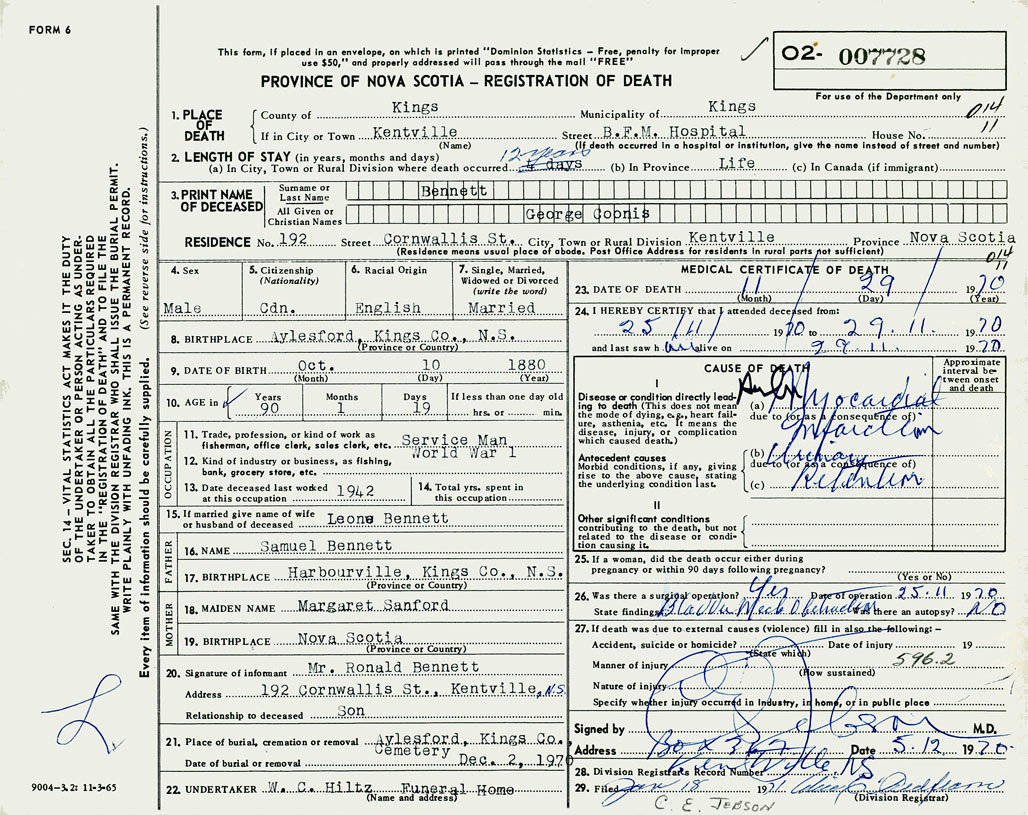 FORM 6
This form, if placed in an envelope, on which is printed "Dominion Statistics – Free, penalty for improper
use $50," and properly addressed will pass through the mail "FREE"
PROVINCE OF NOVA SCOTIA – REGISTRATION OF DEATH
02- 007728
For use of the Department only
014
11
1. PLACE OF DEATH
County of Kings Municipality of Kings
If in City or Town Kentville Street B.F.M. Hospital House No.
(Name) (If death occurred in a hospital or institution, give the name instead of street and number)
2. LENGTH OF STAY (in years, months and days)
12 years
(a) In City, Town or Rural Division where death occurred 4 days (b) In Province Life (c) In Canada (if immigrant)
3. PRINT NAME OF DECEASED
Surname or Last Name Bennett
All Given or Christian Names George Cobnis
RESIDENCE No. 192 Street Cornwallis St. City, Town or Rural Division Kentville Province Nova Scotia
(Residence means usual place of abode. Post Office Address for residents in rural parts not sufficient)
014
11
4. Sex
Male
5. Citizenship
(Nationality)
Cdn.
6. Racial Origin
English
7. Single, Married,
Widowed or Divorced
(write the word)
Married
8. BIRTHPLACE Aylesford, Kings Co., N.S.
(Province or Country)
9. DATE OF BIRTH Oct. 10 1880
(Month) (Day) (Year)
10. AGE in
Years Months Days If less than one day old
90 1 19 hrs. or min.
OCCUPATION
11. Trade, profession, or kind of work as
fisherman, office clerk, sales clerk, etc. Service Man
World War 1
12. Kind of industry or business, as fishing,
bank, grocery store, etc.
13. Date deceased last worked
at this occupation 1942
14. Total yrs. spent in
this occupation
15. If married give name of wife
or husband of deceased Leone Bennett
FATHER
16. NAME Samuel Bennett
17. BIRTHPLACE Harbourville, Kings Co., N.S.
(Province or Country)
MOTHER
18. MAIDEN NAME Margaret Sanford
19. BIRTHPLACE Nova Scotia
(Province or Country)
20. Signature of informant Mr. Ronald Bennett
Address 192 Cornwallis St., Kentville, N.S.
Relationship to deceased Son
21. Place of burial, cremation or removal Aylesford, Kings Co.,
Cemetery
Date of burial or removal Dec. 2, 1970
22. UNDERTAKER W. C. Hiltz Funeral Home
(Name and address)
MEDICAL CERTIFICATE OF DEATH
23. DATE OF DEATH 11 29 1970
(Month) (Day) (Year)
24. I HEREBY CERTIFY that I attended deceased from:
25/11 1970 to 29.11. 1970
and last saw him alive on 29.11. 1970
CAUSE OF DEATH
Approximate
interval be-
tween onset
and death
I
Disease or condition directly lead-
ing to death (This does not mean
the mode of dying, e.g., heart fail-
ure, asthenia, etc. It means the
disease, injury, or complication
which caused death.)
(a) Myocardial
due to (or as a consequence of)
Infarction
Antecedent causes
Morbid conditions, if any, giving
rise to the above cause, stating
the underlying condition last.
(b) Urinary
due to (or as a consequence of)
(c) Retention
II
Other significant conditions
contributing to the death, but not
related to the disease or condi-
tion causing it.
25. If a woman, did the death occur either during
pregnancy or within 90 days following pregnancy?
(Yes or No)
26. Was there a surgical operation? Yes Date of operation 25.11 1970
State findings Bladder Neck Obstruction Was there an autopsy? No
27. If death was due to external causes (violence) fill in also the following: –
Accident, suicide or homicide? Date of injury 19
(State which)
596.2
Manner of injury
(How sustained)
Nature of injury
Specify whether injury occurred in industry, in home, or in public place
Signed by M.D.
Address Box 362 Date 5.12 1970
Kentville NS
28. Division Registrar's Record Number
29. Filed Jan 18 1971
(Division Registrar)
C. E. JEBSON
SEC. 14 – VITAL STATISTICS ACT MAKES IT THE DUTY
OF THE UNDERTAKER OR PERSON ACTING AS UNDER-
TAKER TO OBTAIN ALL THE PARTICULARS REQUIRED
IN THE "REGISTRATION OF DEATH" AND TO FILE THE
SAME WITH THE DIVISION REGISTRAR WHO SHALL ISSUE THE BURIAL PERMIT.
WRITE PLAINLY WITH UNFADING INK. THIS IS A PERMANENT RECORD.
Every item of information should be carefully supplied. (See reverse side for instructions.)
9004-3.2: 11-3-65